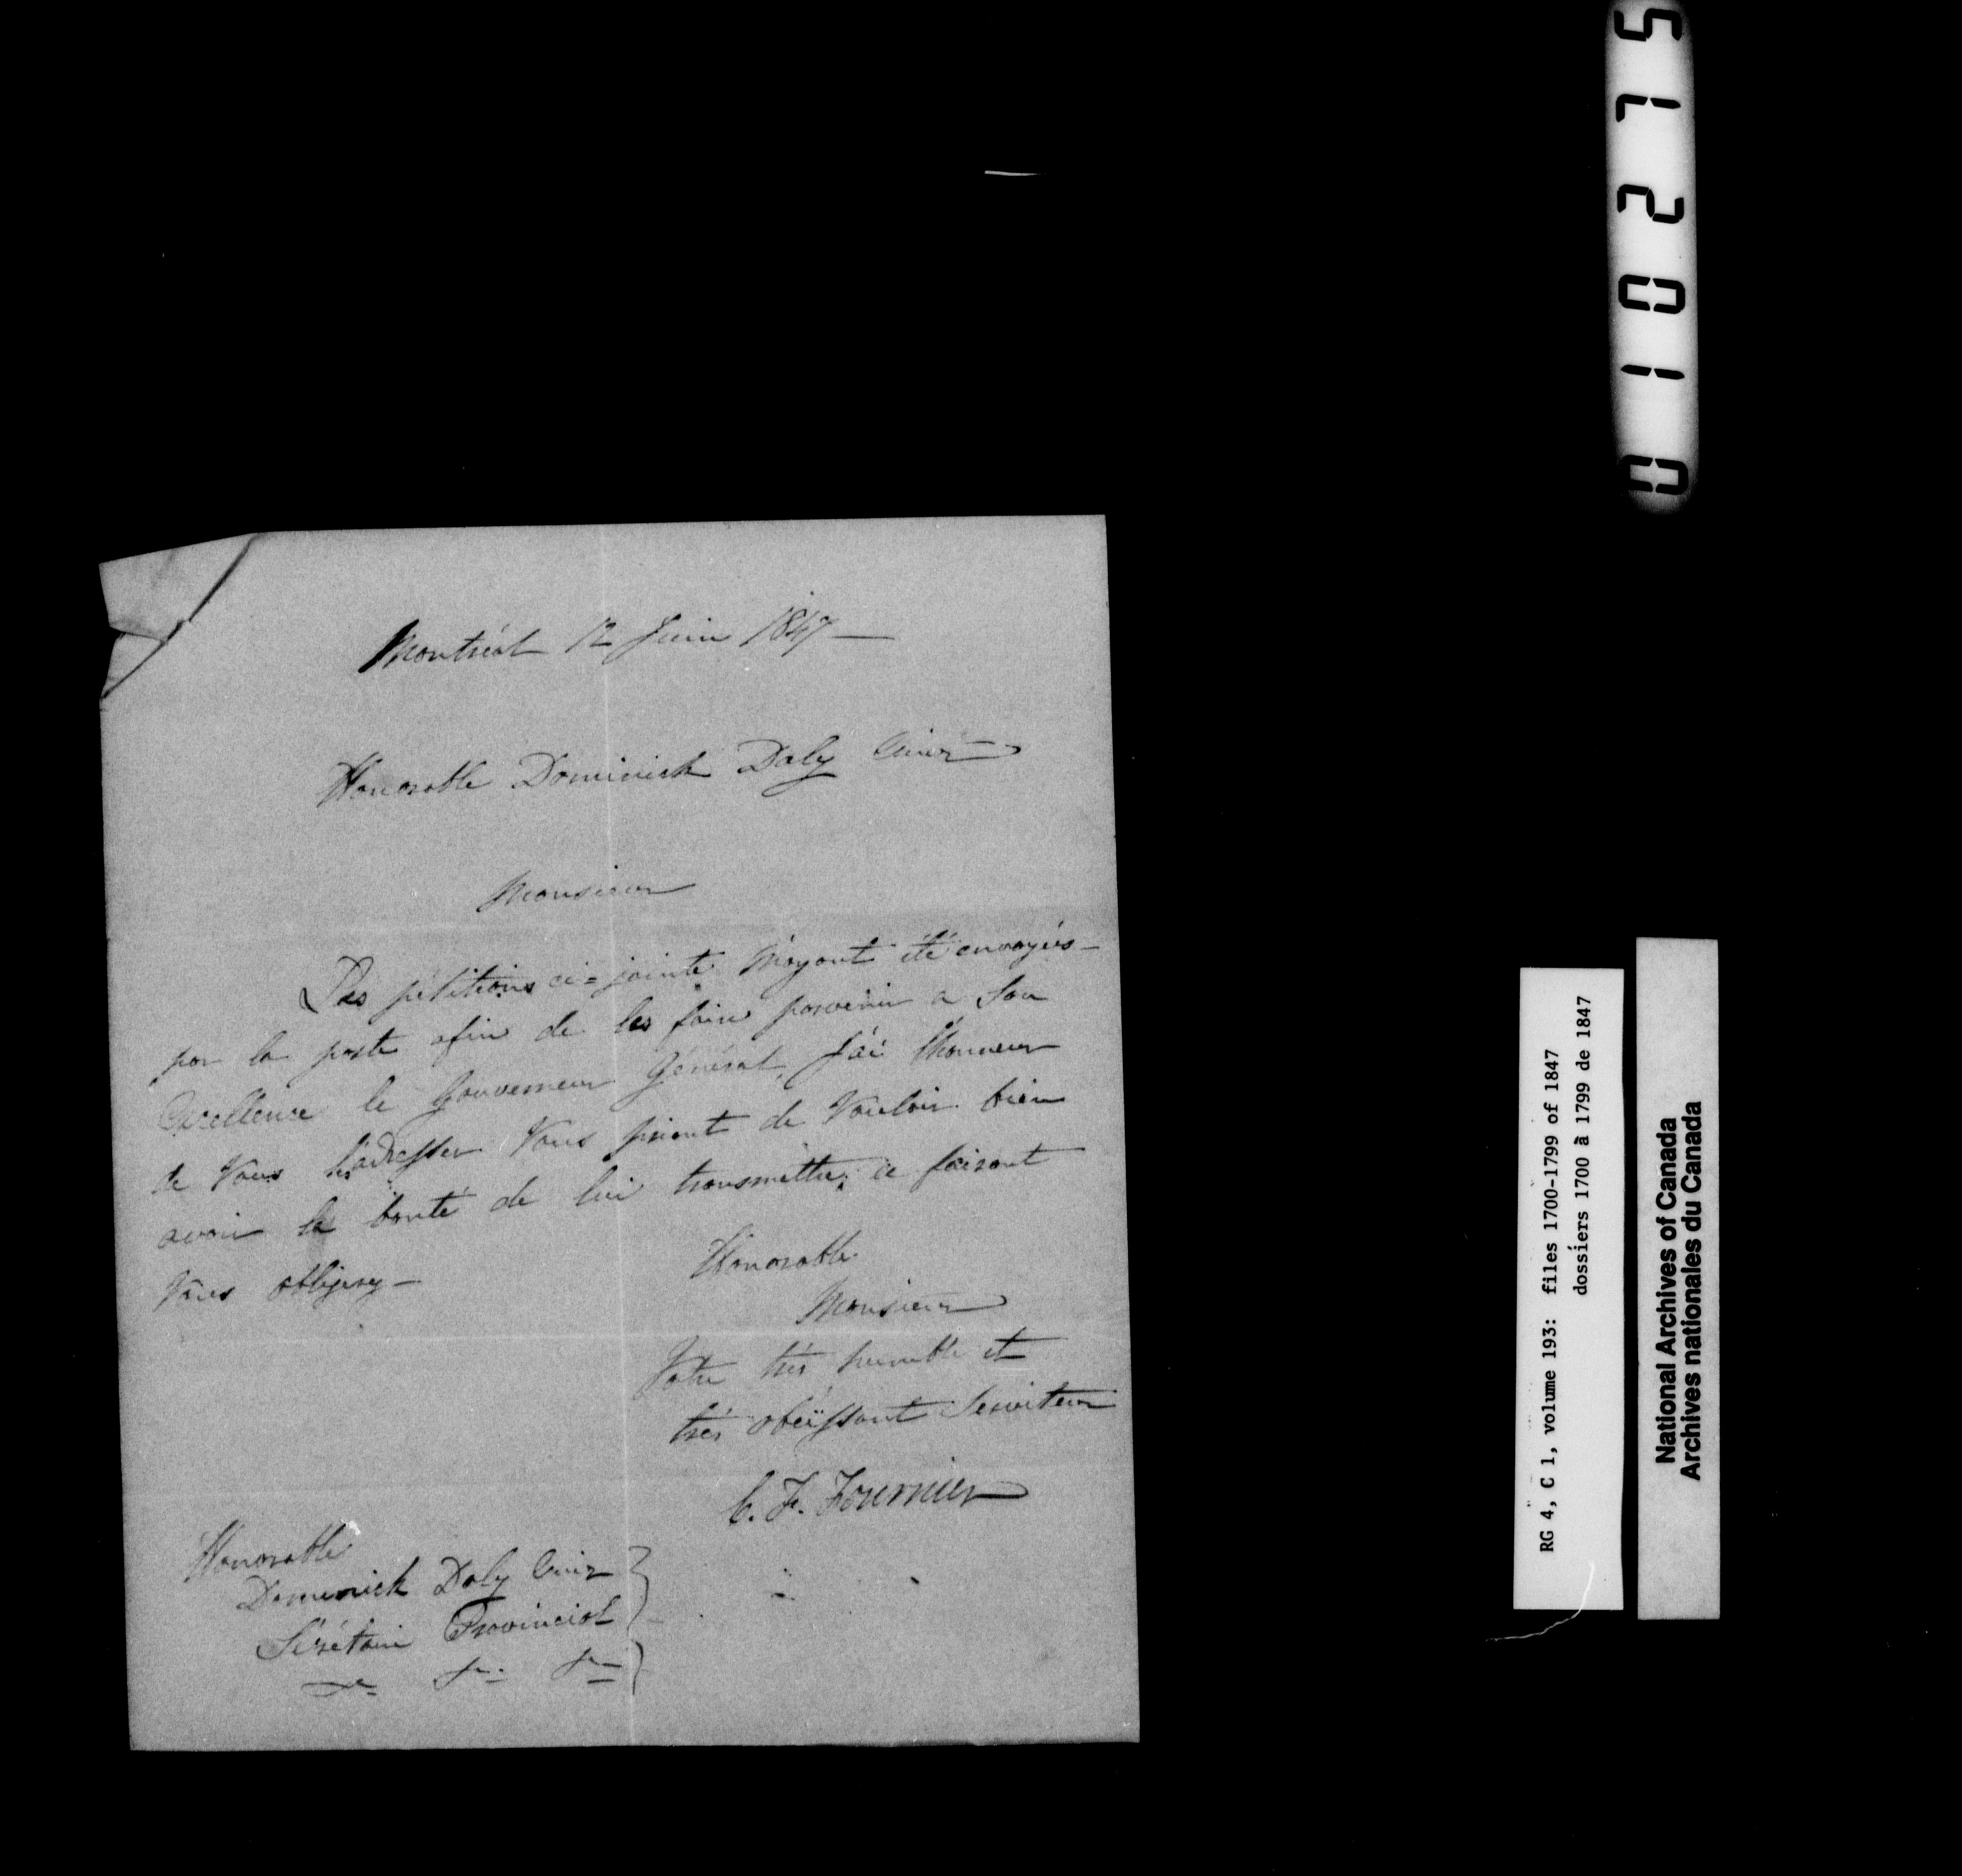 Montréal 12 Juin 1847 —
Honorable Dominick Daly Ecuier
Monsieur
Des pétitions ci=jointe m'ayant été envoyées —
par la poste afin de les faire parvenir a Son
Excellence le Gouverneur Général, J'ai l'honneur
de Vous les adresser Vous priant de Vouloir bien
avoir la bonté de lui transmettre; ce faisant
Vous obligerez —
Honorable
Monsieur
Votre très humble et
très obéissant Serviteur
C. F. Fournier
Honorable
Dominick Daly Ecuier
Sécrétaire Provincial
RG 4, C 1, volume 193: files 1700-1799 of 1847
dossiers 1700 à 1799 de 1847
National Archives of Canada
Archives nationales du Canada
010275